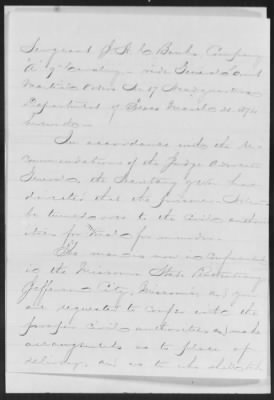 Sergeant J. H. E. Banks, Company
"A" 9" Cavalry — vide General Court
Martial Orders No. 17 Headquarters
Department of Texas March 20, 1874
herewith —
In accordance with the Re-
commendations of the Judge Advocate
General, the Secretary of War has
directed that the prisoner
be turned over to the civil author-
ities for trial for murder.
The man is now in confinement
in the Missouri State Penitentiary
Jefferson City, Missouri, and you
are requested to confer with the
proper civil authorities and make
arrangements as to place of
delivery, and as to who